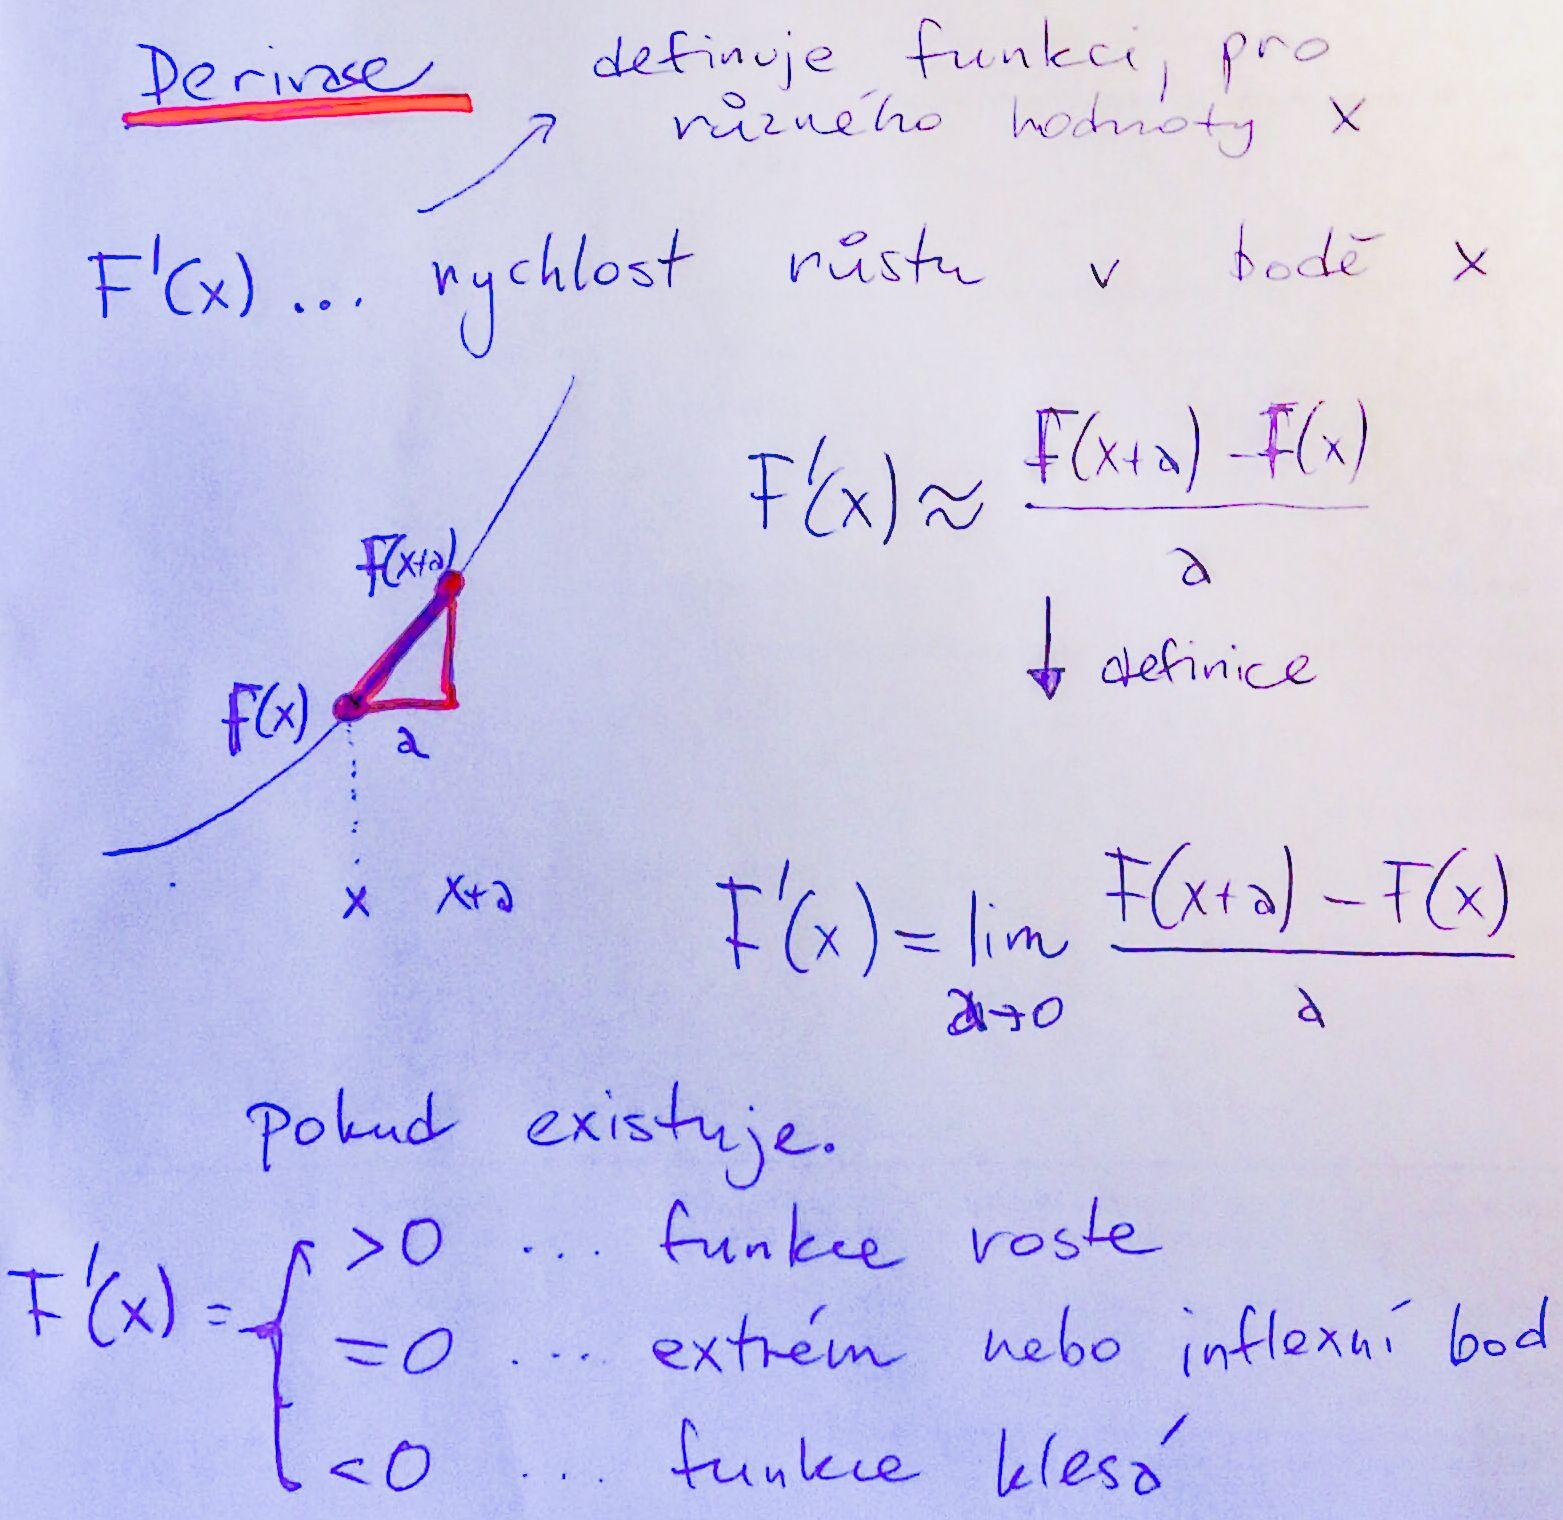 Derivace
definuje funkci, pro
různého hodnoty x
F'(x) ... rychlost růstu v bodě x
F'(x) ≈ F(x+a) - F(x) / a
F(x+a)
↓ definice
F(x)
a
x x+a
F'(x) = lim a→0 F(x+a) - F(x) / a
pokud existuje.
F'(x) = { >0 ... funkce roste
=0 ... extrém nebo inflexní bod
<0 ... funkce klesá